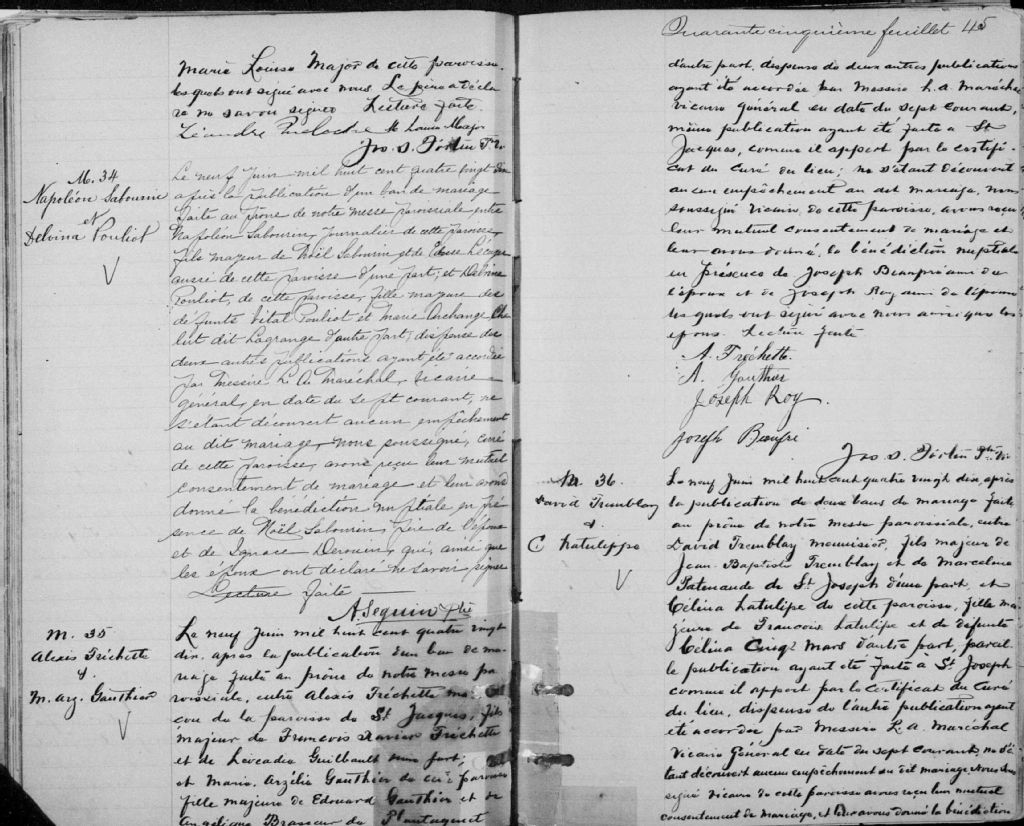 Marie Louise Major de cette paroisse
lesquels ont signé avec nous. Le père a décla
ré ne savoir signer Lecture faite
Léandre M Louise Major
Jos. S. Fortin Ptre Vic
M. 34
Napoléon Sabourin
et
Delvina Pouliot
Le neuf juin mil huit cent quatre vingt dix
après la publication d'un ban de mariage
faite au prone de notre messe paroissiale entre
Napoléon Sabourin, journalier de cette paroisse
fils majeur de Noël Sabourin et de
aussi de cette paroisse d'une part; et Delvina
Pouliot, de cette paroisse, fille majeure des
defunts Vital Pouliot et Marie Archange
dit Lagrange d'autre part; dispense des
deux autres publications ayant été accordée
par Messire L. A. Maréchal, vicaire
général, en date du sept courant, ne
s'étant découvert aucun empêchement
au dit mariage, nous soussigné, curé
de cette paroisse, avons reçu leur mutuel
consentement de mariage et leur avons
donné la bénédiction nuptiale en pré
sence de Noël Sabourin, père de l'époux
et de Ignace Derouin, qui, ainsi que
les époux ont déclaré ne savoir signer
Lecture faite
A. Seguin Ptre
M. 35
Alexis Fréchette
&
M. Arz. Gauthier
Le neuf Juin mil huit cent quatre vingt
dix, après la publication d'un ban de ma
riage faite au prône de notre messe pa
roissiale, entre Alexis Fréchette ma
çon de la paroisse de St Jacques, fils
majeur de François Xavier Fréchette
et de Léocadie Guilbault d'une part;
et Marie Arzélie Gauthier de cette paroisse
fille majeure de Edouard Gauthier et de
Angélique Brasseur de Plantagenet
Quarante cinquième feuillet 45
d'autre part, dispense de deux autres publications
ayant été accordée par Messire L. A. Maréchal
vicaire général en date du sept courant,
même publication ayant été faite à St
Jacques, comme il appert par le certifi-
cat du Curé du lieu; ne s'étant découvert
aucun empêchement au dit mariage, nous
soussigné vicaire de cette paroisse, avons reçu
leur mutuel consentement de mariage et
leur avons donné la bénédiction nuptiale
en présence de Joseph Beaupré ami de
l'époux et de Joseph Roy ami de l'épouse
lesquels ont signé avec nous ainsi que les
époux. Lecture faite
A. Fréchette.
A. Gauthier
Joseph Roy.
Joseph Beaupré
Jos. S. Fortin Ptre Vic
M. 36.
David Tremblay
&
C Latulippe
Le neuf Juin mil huit cent quatre vingt dix, après
la publication de deux bans de mariage faite
au prône de notre messe paroissiale, entre
David Tremblay menuisier, fils majeur de
Jean-Baptiste Tremblay et de Marceline
Patenaude de St Joseph d'une part, et
Célina Latulipe de cette paroisse, fille ma
jeure de Francois Latulipe et de defunte
Célina Cinq Mars d'autre part, pareil
le publication ayant été faite à St Joseph
comme il appert par le certificat du Curé
du lieu, dispense de l'autre publication ayant
été accordée par Messire L. A. Maréchal
Vicaire Général en date du sept courant, ne s'é
tant découvert aucun empêchement au dit mariage Nous Sous
signé vicaire de cette paroisse avons reçu leur mutuel
consentement de mariage, et leur avons donné la bénédiction